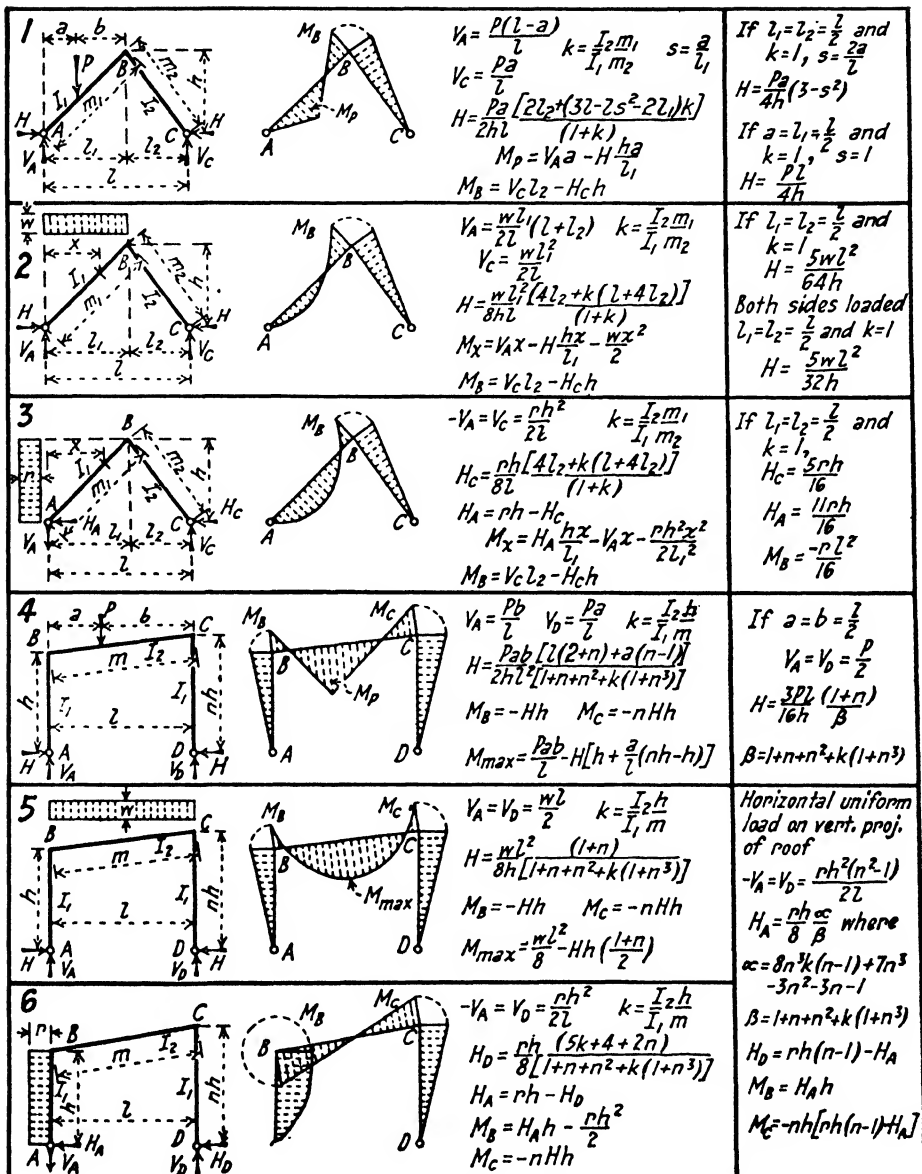 1
a b
P
B
I₁ m₁ m₂ I₂ h
H A C H
V_A l₁ l₂ V_C
l
M_B
B
M_P
A C
V_A = P(l-a)/l k = I₂m₁/I₁m₂ s = a/l₁
V_C = Pa/l
H = Pa/2hl [2l₂+(3l-ls²-2l₁)k]/(1+k)
M_P = V_A a - H ha/l₁
M_B = V_C l₂ - H_C h
If l₁=l₂=l/2 and
k=1, s=2a/l
H = Pa/4h (3-s²)
If a=l₁=l/2 and
k=1, s=1
H = Pl/4h
2
w
x
B
I₁ m₁ m₂ I₂ h
H A C H
V_A l₁ l₂ V_C
l
M_B
B
A C
V_A = wl₁/2l (l+l₂) k = I₂m₁/I₁m₂
V_C = wl₁²/2l
H = wl₁²/8hl [4l₂+k(l+4l₂)]/(1+k)
M_x = V_A x - H hx/l₁ - wx²/2
M_B = V_C l₂ - H_C h
If l₁=l₂=l/2 and
k=1
H = 5wl²/64h
Both sides loaded
l₁=l₂=l/2 and k=1
H = 5wl²/32h
3
B
x
r I₁ m₁ m₂ I₂ h
A H_A C H_C
V_A l₁ l₂ V_C
l
M_B
B
A C
-V_A = V_C = rh²/2l k = I₂m₁/I₁m₂
H_C = rh/8l [4l₂+k(l+4l₂)]/(1+k)
H_A = rh - H_C
M_x = H_A hx/l₁ - V_A x - rh²x²/2l₁²
M_B = V_C l₂ - H_C h
If l₁=l₂=l/2 and
k=1,
H_C = 5rh/16
H_A = 11rh/16
M_B = -rl²/16
4
a P b
B C
m I₂
h I₁ l I₁ nh
H A D H
V_A V_D
M_B M_C
B C
M_P
A D
V_A = Pb/l V_D = Pa/l k = I₂h/I₁m
H = Pab/2hl² [l(2+n)+a(n-1)]/[1+n+n²+k(1+n³)]
M_B = -Hh M_C = -nHh
M_max = Pab/l - H[h + a/l (nh-h)]
If a=b=l/2
V_A = V_D = P/2
H = 3Pl/16h (1+n)/β
β=1+n+n²+k(1+n³)
5
w
B C
m I₂
h I₁ l I₁ nh
H A D H
V_A V_D
M_B M_C
B C
M_max
A D
V_A = V_D = wl/2 k = I₂h/I₁m
H = wl²/8h (1+n)/[1+n+n²+k(1+n³)]
M_B = -Hh M_C = -nHh
M_max = wl²/8 - Hh((1+n)/2)
Horizontal uniform
load on vert. proj.
of roof
-V_A = V_D = rh²(n²-1)/2l
H_A = rh/8 α/β where
α=8n³k(n-1)+7n³
-3n²-3n-1
β=1+n+n²+k(1+n³)
H_D = rh(n-1)-H_A
M_B = H_A h
M_C = -nh[rh(n-1)-H_A]
6
r B C
m I₂
I₁ h l I₁ nh
A H_A D H_D
V_A V_D
M_B M_C
B C
D
-V_A = V_D = rh²/2l k = I₂h/I₁m
H_D = rh/8 (5k+4+2n)/[1+n+n²+k(1+n³)]
H_A = rh - H_D
M_B = H_A h - rh²/2
M_C = -nHh